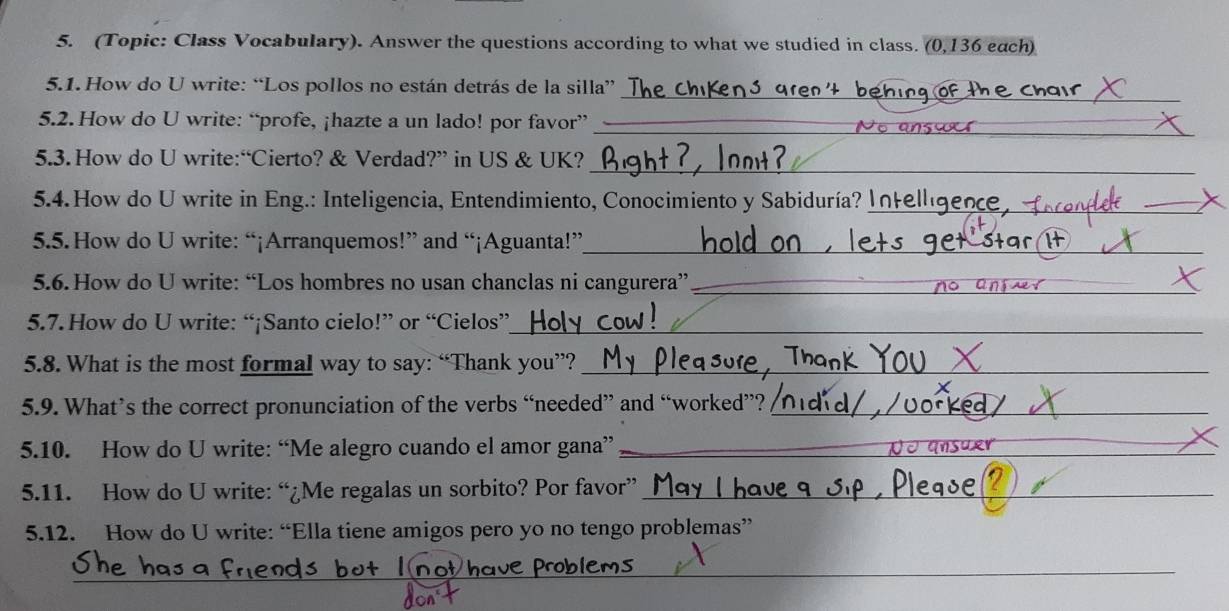 5. (Topic: Class Vocabulary). Answer the questions according to what we studied in class. (0,136 each)
5.1. How do U write: “Los pollos no están detrás de la silla” The chikens aren't behing of the chair X
5.2. How do U write: “profe, ¡hazte a un lado! por favor” No answer X
5.3. How do U write:“Cierto? & Verdad?” in US & UK? Right?, Innit? ✓
5.4. How do U write in Eng.: Inteligencia, Entendimiento, Conocimiento y Sabiduría? Intelligence, Incomplete X
5.5. How do U write: “¡Arranquemos!” and “¡Aguanta!” hold on, lets get it star It
5.6. How do U write: “Los hombres no usan chanclas ni cangurera” no answer X
5.7. How do U write: “¡Santo cielo!” or “Cielos” Holy cow! ✓
5.8. What is the most formal way to say: “Thank you”? My pleasure, Thank YOU X
5.9. What’s the correct pronunciation of the verbs “needed” and “worked”? /nidid/, /uorked/ x
5.10. How do U write: “Me alegro cuando el amor gana” No answer X
5.11. How do U write: “¿Me regalas un sorbito? Por favor” May I have a sip, Please ? ✓
5.12. How do U write: “Ella tiene amigos pero yo no tengo problemas”
She has a friends bot I not have problems
don't